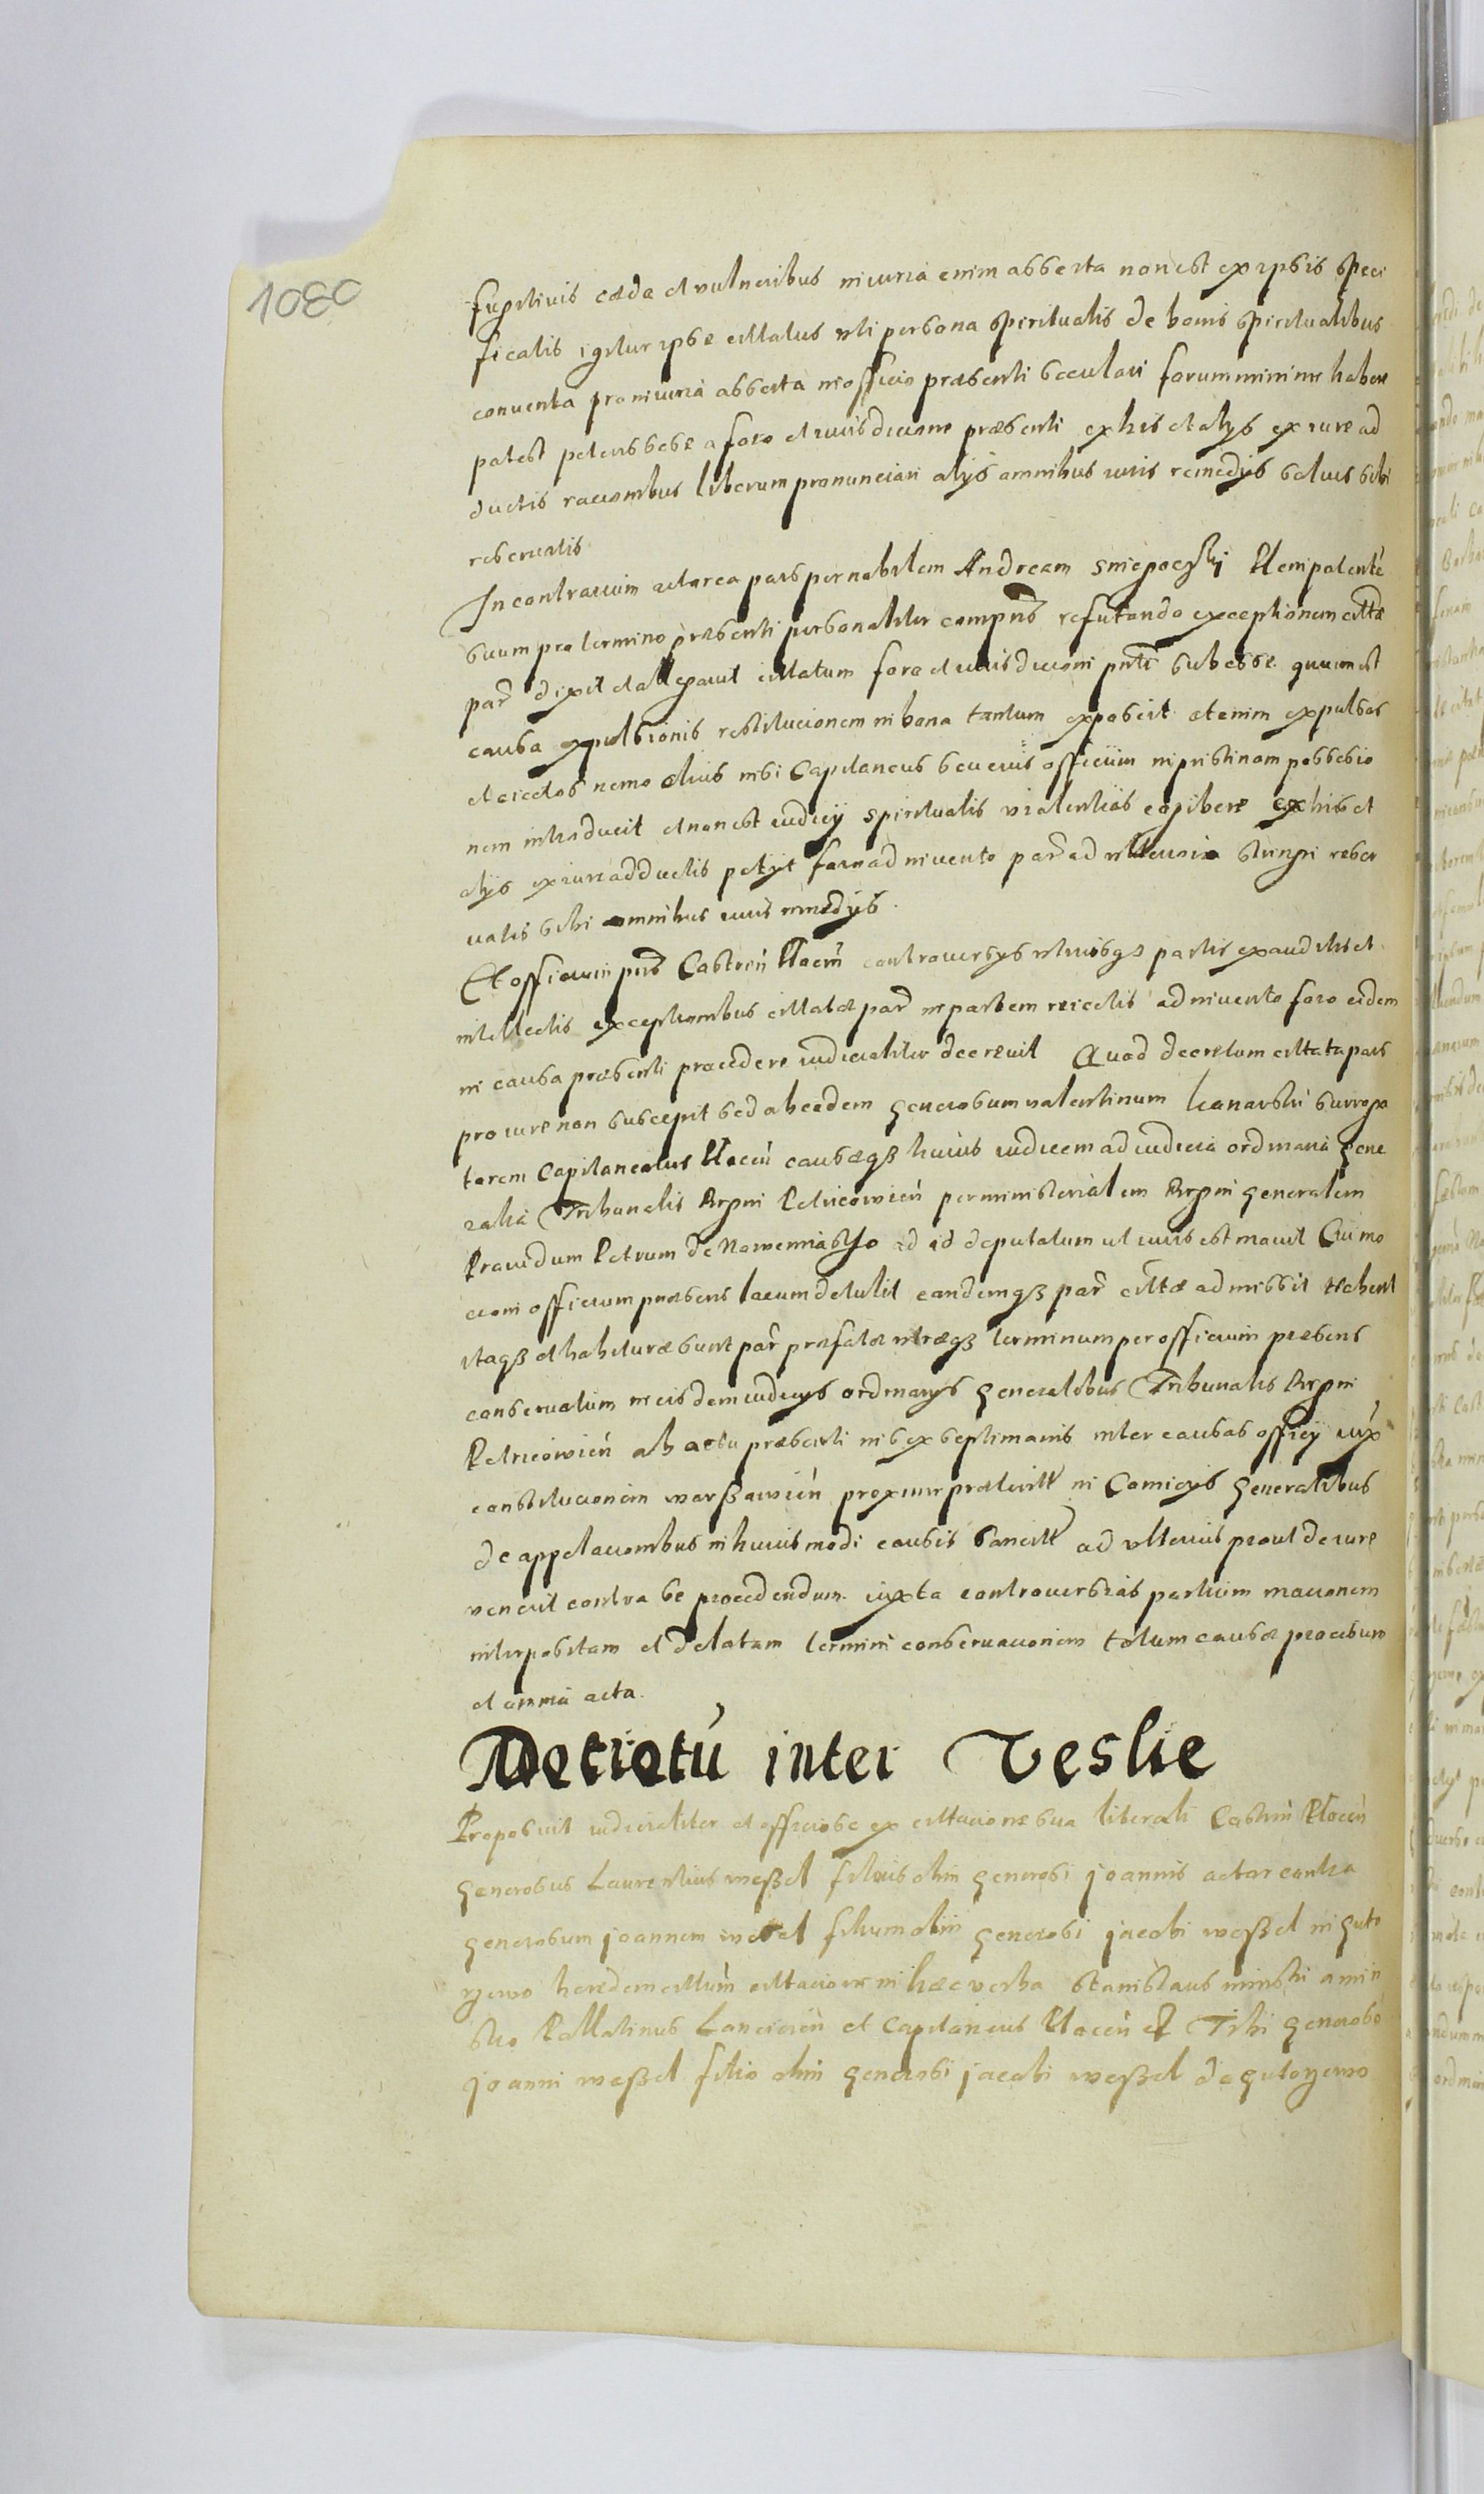 1080
fugitivis cæde et vulneribus iniuria enim asserta non est ex ipsis speci
ficatis igitur ipse citatus uti persona spiritualis de bonis spiritualibus
conventa pro iniuria asserta in officio præsenti seculari forum minime habere
potest petens sese a foro et iurisdicione præsenti ex his et alijs ex iure ad
ductis racionibus liberum pronunciari alijs omnibus iuris remedijs salvis sibi
reservatis
In contrarium actorea pars per nobilem Andream Plenipotentē
suum pro termino præsenti personaliter compns refutando exceptionem cittæ
par dixit et allegavit citatum foro et iurisdicioni pnti subesse quum est
causa expulsionis restitucionem in bona tantum exposcit etenim expulsos
et eiectos nemo alius nisi Capitaneus seu eius officium in pristinam possessio
nem introducit et non est iudicij spiritualis violentias cohibere ex his et
alijs ex iure adductis petijt foro adinvento par ad ulteriora stringi reser
vatis sibi omnibus iuris remedijs.
Et officium pns Castren Plocen controversijs utriusqȝ partis exauditis et
intellectis exceptionibus citatæ par in partem reiectis adinvento foro eidem
in causa præsenti procedere iudicialiter decrevit Quod decretum citata pars
pro iure non suscepit sed ab eodem generosum Valentinum surroga
torem Capitaneatus Plocen causæqȝ huius iudicem ad iudicia ordinaria gene
ralia Tribunalis Regni Petricovien per ministerialem Regni generalem
Providum Petrum de Nowemiasto ad id deputatum ut iuris est movit Cui mo
cioni officium præsens locum detulit eandemqȝ par cittæ admissit habent
itaqȝ et habituræ sunt par præfatæ utræqȝ terminum per officium præsens
conservatum in eisdem iudicijs ordinarijs generalibus Tribunalis Regni
Petricovien ab actu præsenti in sex septimanis inter causas officij iux
constitucionem warßavien proxime præterit in Comicijs generalibus
de appelacionibus in huiusmodi causis sancit ad ulterius prout de iure
venerit contra se procedendum iuxta controversias partium mocionem
interpositam et delatam termini conservacionem totum causæ processum
et omnia acta.
Decretū inter Veslie
Proposuit iudicialiter et officiose ex citacione sua literali Castren Plocen
generosus Laurentius weßel filius olim generosi joannis actor contra
generosum joannem weßel filium olim generosi jacobi weßel in guto
rzewo heredem citum citacione in hæc verba Stanislaus minski a min
sko Pallatinus Lancicien et Capitaneus Plocen et Tibi generoso
joanni weßel filio olim generosi jacobi weßel de gutorzewo